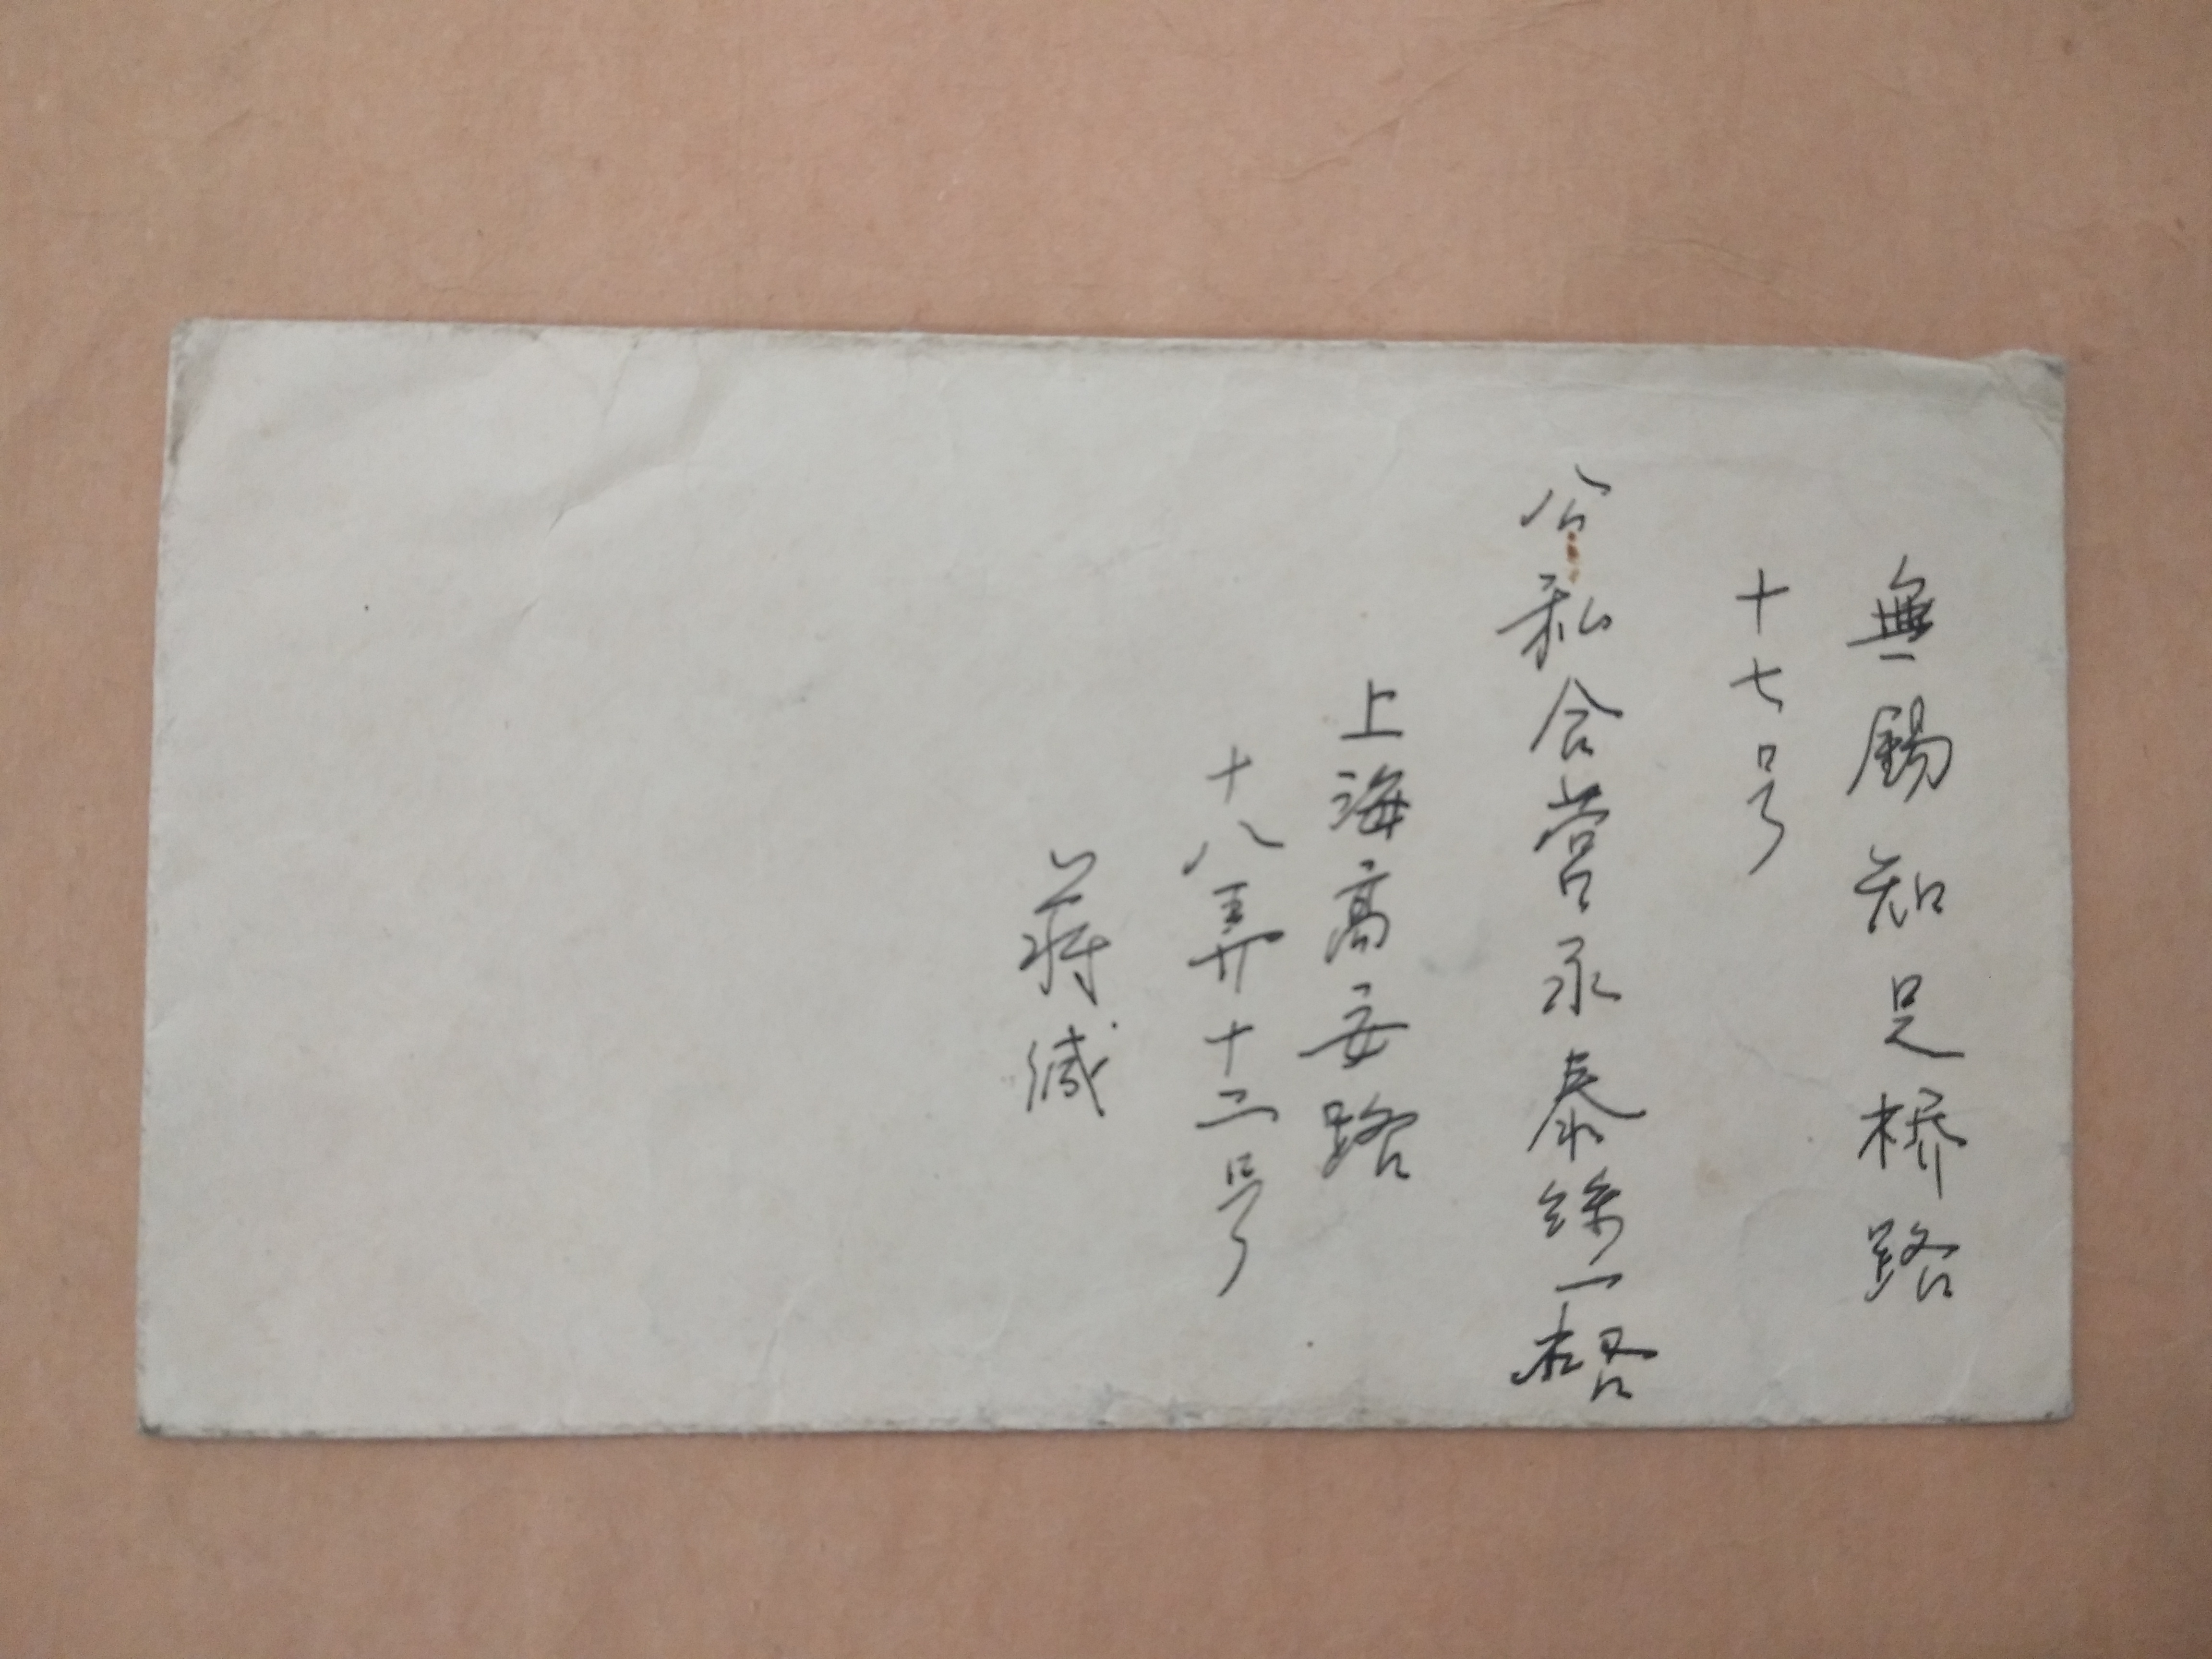 無錫知足桥路
十七号
公私合营永泰絲
上海高安路
十八弄十二号
蒋缄